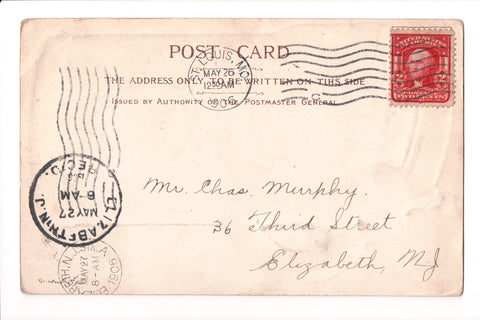 POST CARD
THE ADDRESS ONLY TO BE WRITTEN ON THIS SIDE
ISSUED BY AUTHORITY OF THE POSTMASTER GENERAL
ST. LOUIS, MO.
MAY 26
12 30 AM
1906
Mr. Chas. Murphy.
36 Third Street
Elizabeth, NJ
ELIZABETH N.J.
MAY 27
6-AM
REC'D.
MAY 27
8-AM
1906